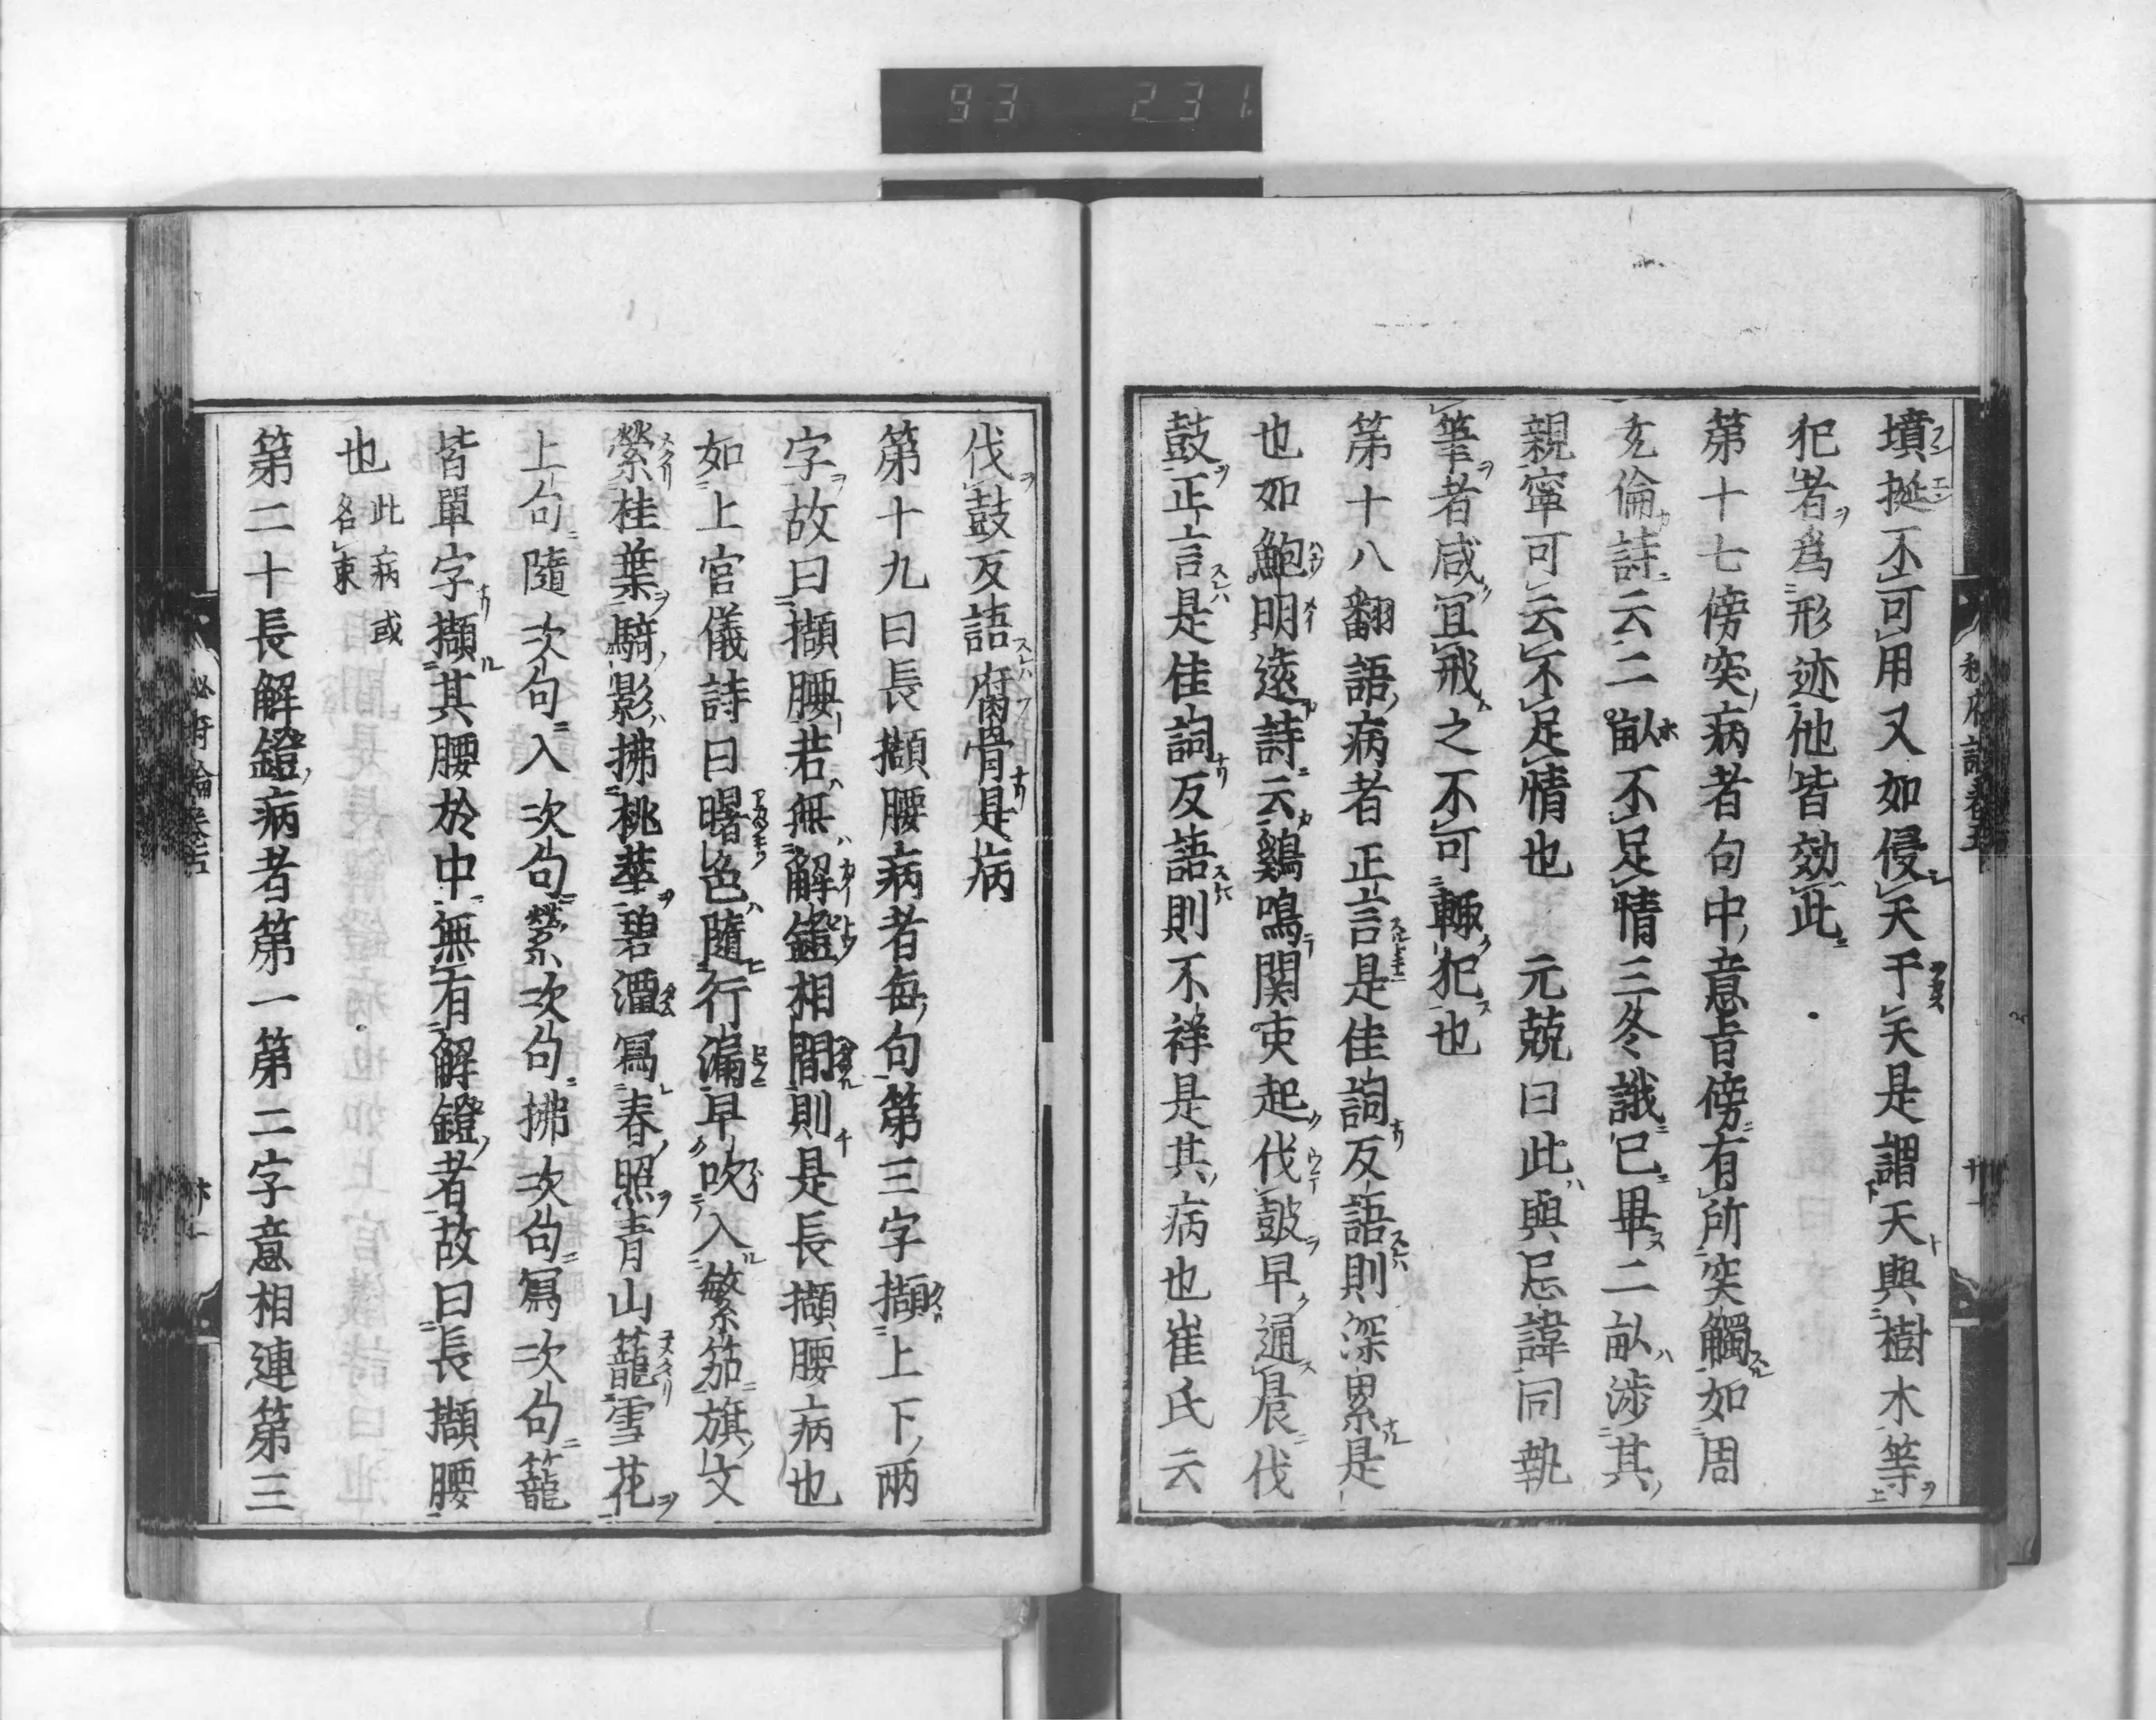 93 231
墳挻不可用又如侵天干天是謂天與樹木等
犯者爲形迹他皆效此
第十七傍突病者句中意旨傍有所突觸如周
彥倫詩云二畝不足情三冬誐巳畢二畝涉其
親寧可云不足情也 元兢曰此與忌諱同執
筆者咸宜戒之不可輙犯也
第十八翻語病者正言是佳詞反語則深累是
也如鮑明遠詩云鷄鳴関吏起伐鼓早通晨伐
鼓正言是佳詞反語則不祥是其病也崔氏云
伐鼓反語腐骨是病
第十九曰長擷腰病者每句第三字擷上下兩
字故曰擷腰若無解鐙相間則是長擷腰病也
如上官儀詩曰曙色隨行漏早吹入繁笳旗文
縈桂葉騎影拂桃華碧潭寫春照青山籠雪花
上句隨次句入次句縈次句拂次句寫次句籠
皆單字擷其腰於中無有解鐙者故曰長擷腰
也 此病或名束
第二十長解鐙病者第一第二字意相連第三